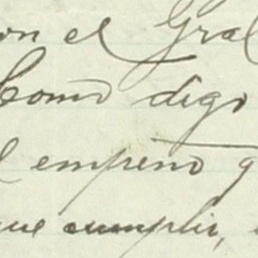 on el Gral
Como digo
el empeño q
que cumplir,